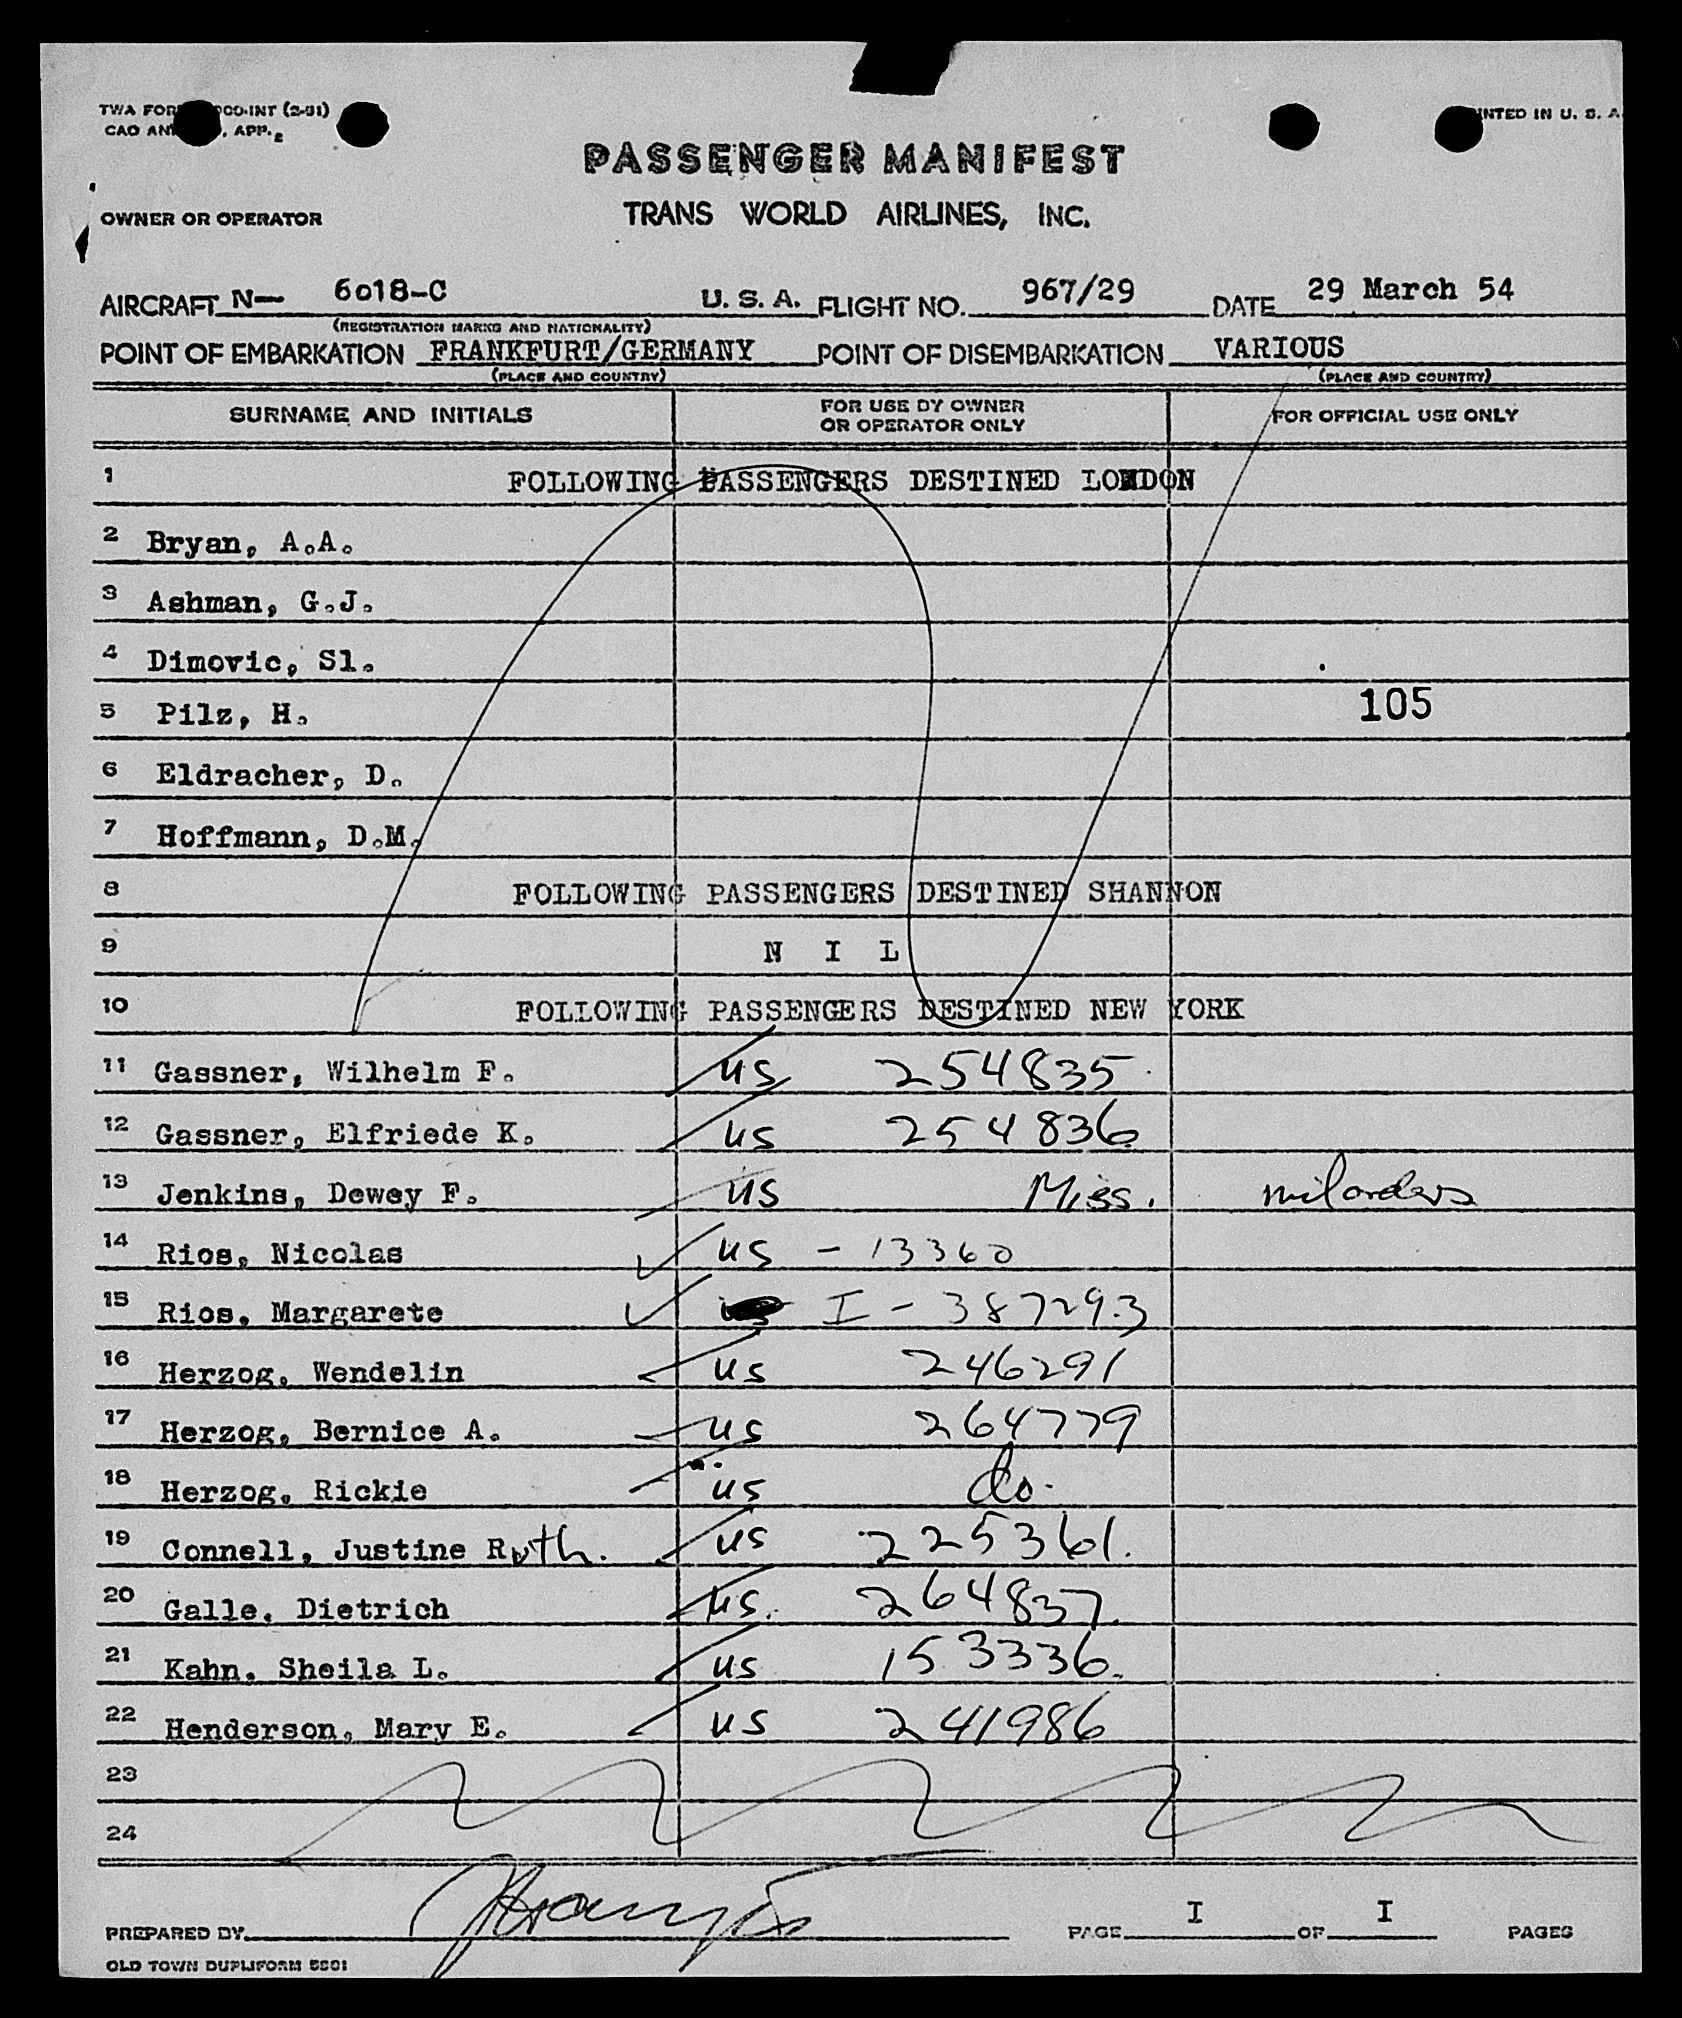 TWA FOR CO-INT (2-51)
CAO AN , APP. 2
INTED IN U. S. A.
PASSENGER MANIFEST
OWNER OR OPERATOR TRANS WORLD AIRLINES, INC.
AIRCRAFT N— 6018-C U. S. A. FLIGHT NO. 967/29 DATE 29 March 54
(REGISTRATION MARKS AND NATIONALITY)
POINT OF EMBARKATION FRANKFURT/GERMANY POINT OF DISEMBARKATION VARIOUS
(PLACE AND COUNTRY) (PLACE AND COUNTRY)
SURNAME AND INITIALS FOR USE BY OWNER OR OPERATOR ONLY FOR OFFICIAL USE ONLY
1 FOLLOWING PASSENGERS DESTINED LONDON
2 Bryan, A.A.
3 Ashman, G.J.
4 Dimovic, Sl.
5 Pilz, H. 105
6 Eldracher, D.
7 Hoffmann, D.M.
8 FOLLOWING PASSENGERS DESTINED SHANNON
9 N I L
10 FOLLOWING PASSENGERS DESTINED NEW YORK
11 Gassner, Wilhelm F. us 254835
12 Gassner, Elfriede K. us 254836
13 Jenkins, Dewey F. us Miss. milorders
14 Rios, Nicolas us - 13360
15 Rios, Margarete I - 387293
16 Herzog, Wendelin us 246291
17 Herzog, Bernice A. us 264779
18 Herzog, Rickie us do.
19 Connell, Justine Ruth. us 225361.
20 Galle, Dietrich us. 264837.
21 Kahn, Sheila L. us 153336.
22 Henderson, Mary E. us 241986
23
24
PREPARED BY PAGE I OF I PAGES
OLD TOWN DUPLIFORM 5501